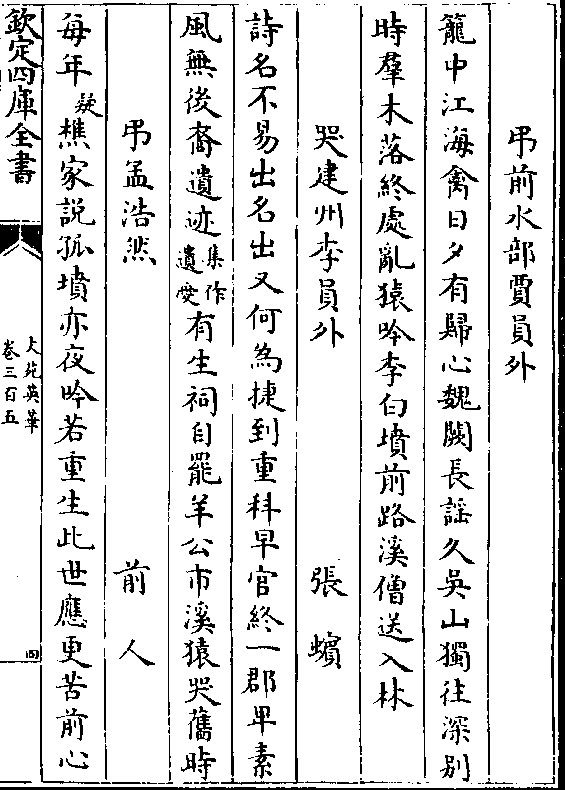 弔前水部賈員外
籠中江海禽日夕有歸心魏闕長謡久吳山獨往深别
時羣木落終處亂猿吟李白墳前路溪僧送入林
哭建州李員外 張蠙
詩名不易出名出又何為捷到重科早官終一郡卑素
風無後裔遺迹集作遺愛有生祠自罷羊公市溪猿哭舊時
弔孟浩然 前人
每年疑樵家説孤墳亦夜吟若重生此世應更苦前心
欽定四庫全書
文苑英華
卷三百五
四